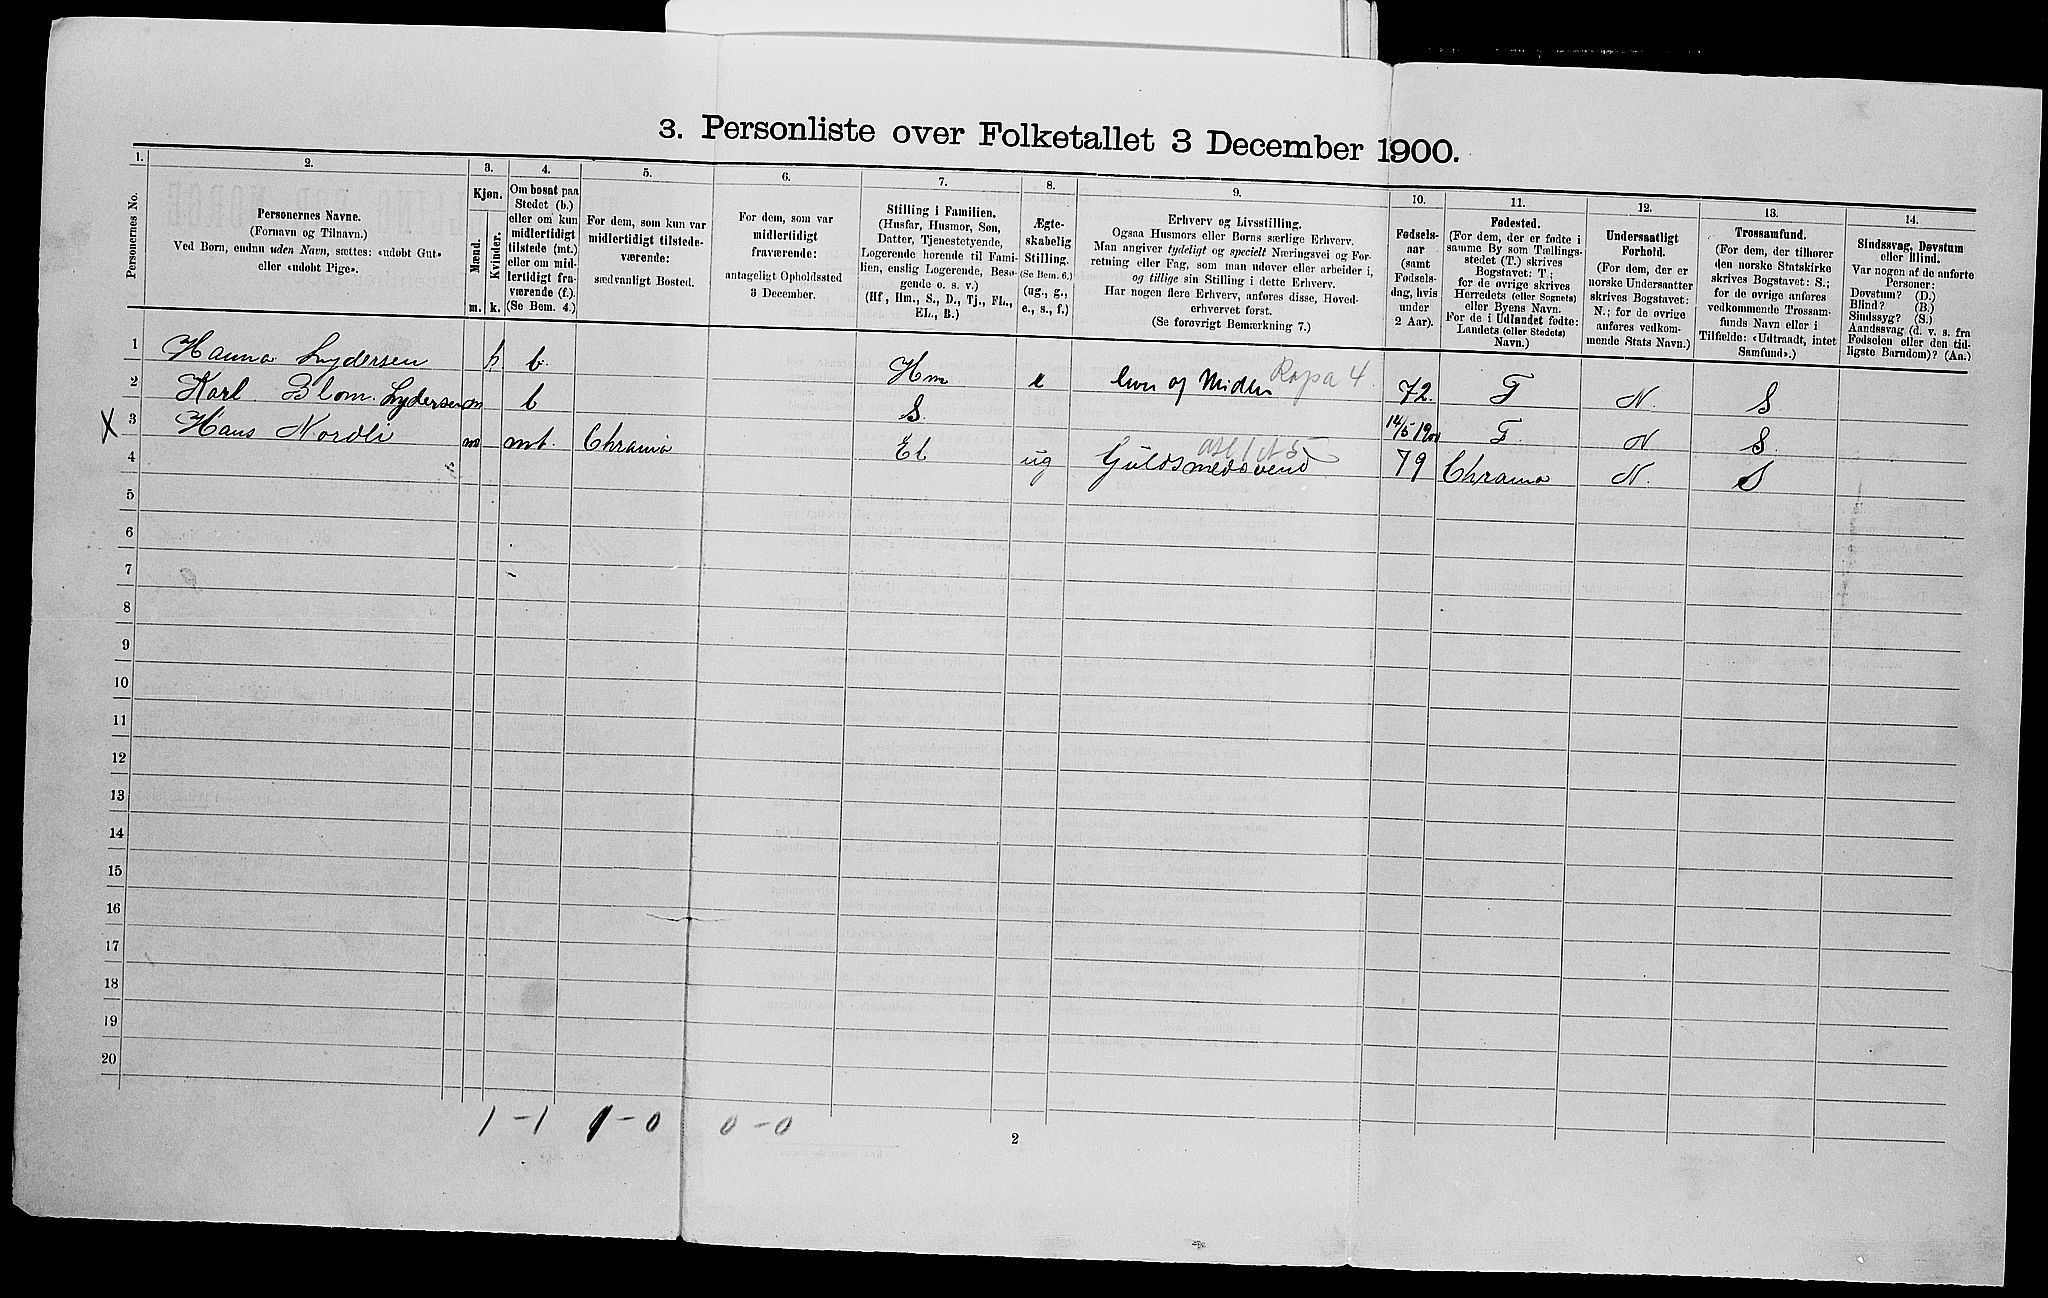 3. Personliste over Folketallet 3 December 1900.
1. 2. 3. 4. 5. 6. 7. 8. 9. 10. 11. 12. 13. 14.
Personernes No.
Personernes Navne.
(Fornavn og Tilnavn.)
Ved Børn, endnu uden Navn, sættes: «udøbt Gut»
eller «udøbt Pige».
Kjøn.
Mænd.
Kvinder.
m. k.
Om bosat paa
Stedet (b.)
eller om kun
midlertidigt
tilstede (mt.)
eller om mid-
lertidigt fra-
værende (f.).
(Se Bem. 4.)
For dem, som kun var
midlertidigt tilstede-
værende:
sædvanligt Bosted.
For dem, som var
midlertidigt
fraværende:
antageligt Opholdssted
3 December.
Stilling i Familien.
(Husfar, Husmor, Søn,
Datter, Tjenestetyende,
Logerende hørende til Fami-
lien, enslig Logerende, Besø-
gende o. s. v.)
(Hf, Hm., S., D., Tj., FL.,
EL., B.)
Ægte-
skabelig
Stilling.
(Se Bem. 6.)
(ug., g.,
e., s., f.)
Erhverv og Livsstilling.
Ogsaa Husmors eller Børns særlige Erhverv.
Man angiver tydeligt og specielt Næringsvei og For-
retning eller Fag, som man udøver eller arbeider i,
og tillige sin Stilling i dette Erhverv.
Har nogen flere Erhverv, anføres disse, Hoved-
erhvervet først.
(Se forøvrigt Bemærkning 7.)
Fødsels-
aar
(samt
Fødsels-
dag, hvis
under
2 Aar).
Fødested.
(For dem, der er fødte i
samme By som Tællings-
stedet (T.) skrives
Bogstavet: T;
for de øvrige skrives
Herredets (eller Sognets)
eller Byens Navn.
For de i Udlandet fødte:
Landets (eller Stedets)
Navn.)
Undersaatligt
Forhold.
(For dem, der er
norske Undersaatter
skrives Bogstavet:
N.; for de øvrige
anføres vedkom-
mende Stats Navn.)
Trossamfund.
(For dem, der tilhører
den norske Statskirke
skrives Bogstavet: S.;
for de øvrige anføres
vedkommende Trossam-
funds Navn eller i
Tilfælde: «Udtraadt, intet
Samfund».)
Sindssvag, Døvstum
eller Blind.
Var nogen af de anførte
Personer:
Døvstum? (D.)
Blind? (B.)
Sindssyg? (S.)
Aandssvag (d. v. s. fra
Fødselen eller den tid-
ligste Barndom)? (Aa.)
1 Hanna Lydersen k b. Hm e lever af Midler 72. T N. S
2 Karl Blom Lydersen m b S. 14/5 1900 T. N S.
X 3 Hans Nordli m mt. Chrania El ug Guldsmedsvend 79 Chrania N. S
4
5
6
7
8
9
10
11
12
13
14
15
16
17
18
19
20
1 - 1 1 - 0 0 - 0
2